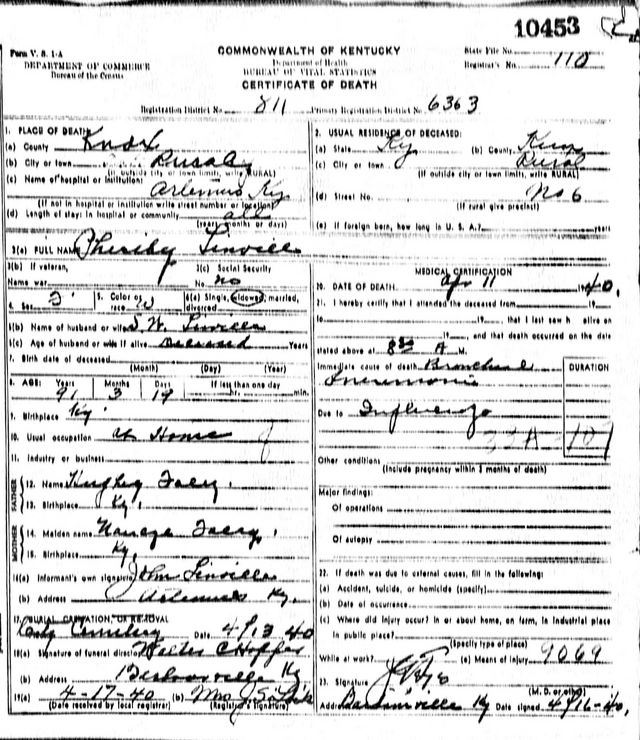 10453
Form V. S. 1-A
DEPARTMENT OF COMMERCE
Bureau of the Census
COMMONWEALTH OF KENTUCKY
Department of Health
BUREAU OF VITAL STATISTICS
CERTIFICATE OF DEATH
State File No.
Registrar's No. 110
Registration District No. 811 Primary Registration District No. 6363
1. PLACE OF DEATH
(a) County Knox
(b) City or town Rural
(If outside city or town limits, write RURAL)
(c) Name of hospital or institution: Artemus Ky
(If not in hospital or institution write street number or location)
(d) Length of stay: In hospital or community all
(years months or days)
2. USUAL RESIDENCE OF DECEASED:
(a) State Ky (b) County Knox
(c) City or town Rural
(If outside city or town limits, write RURAL)
(d) Street No. No 6
(If rural give precinct)
(e) If foreign born, how long in U. S. A.? years
3(a) FULL NAME
3(b) If veteran, 3(c) Social Security
Name war No. no
4. Sex F 5. Color or race W 6(a) Single, widowed, married, divorced
6(b) Name of husband or wife
6(c) Age of husband or wife if alive Deceased Years
7. Birth date of deceased
(Month) (Day) (Year)
8. AGE: Years Months Days If less than one day
91 3 19 hr. min.
9. Birthplace Ky.
10. Usual occupation at Home
11. Industry or business
FATHER
12. Name
13. Birthplace Ky.
MOTHER
14. Maiden name
15. Birthplace Ky.
16(a) Informant's own signature John Linville
(b) Address Artemus Ky.
17. BURIAL, CREMATION, OR REMOVAL
Cemetery Date 4/13 40
18(a) Signature of funeral director Walter C Hopper
(b) Address Barbourville Ky
19(a) 4-17-40 (b) Mrs
(Date received by local registrar) (Registrar's signature)
MEDICAL CERTIFICATION
20. DATE OF DEATH Apr 11 1940.
21. I hereby certify that I attended the deceased from 19
to 19, that I last saw h alive on
19, and that death occurred on the date
stated above at 8 30 A M.
Immediate cause of death Bronchial
Pneumonia
DURATION
Due to Influenza
33A-107
Other conditions
(Include pregnancy within 3 months of death)
Major findings:
Of operations
Of autopsy
22. If death was due to external causes, fill in the following:
(a) Accident, suicide, or homicide (specify)
(b) Date of occurrence
(c) Where did injury occur? In or about home, on farm, in industrial place
in public place?
(Specify type of place)
While at work? (e) Means of injury 9069
23. Signature
(M. D. or other)
Address Barbourville Ky Date signed 4/16-40.